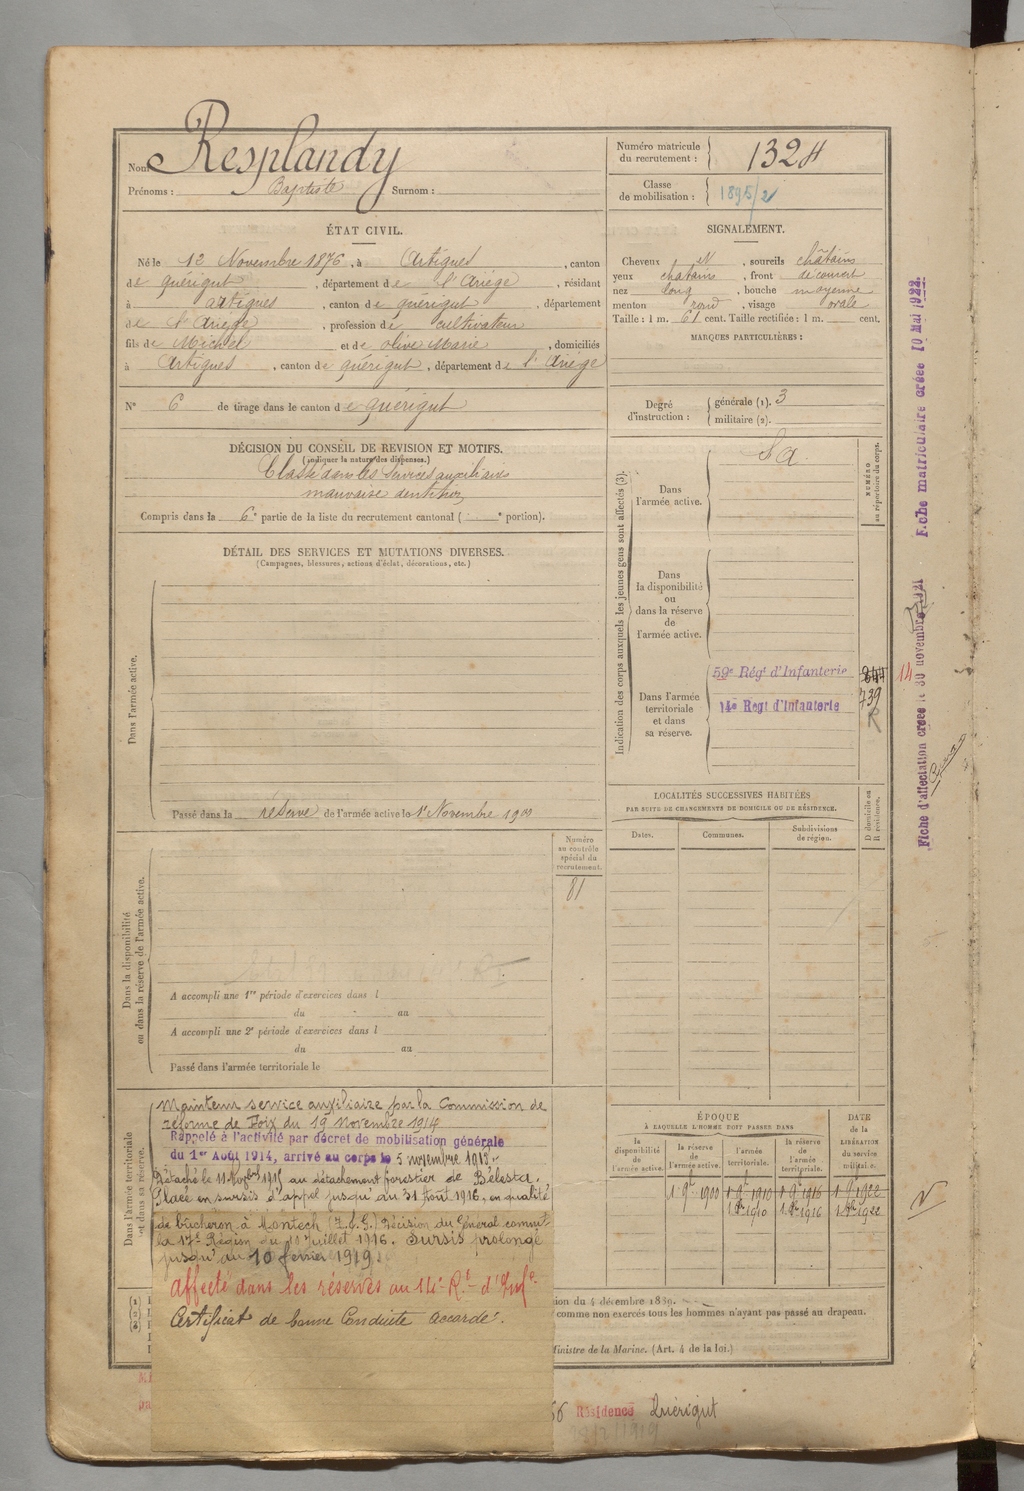 Nom Resplandy
Prénoms : Baptiste Surnom :
Numéro matricule du recrutement : 1324
Classe de mobilisation : 1895/2
ÉTAT CIVIL.
Né le 12 Novembre 1876, à Artigues, canton
de quérigut, département de l'Ariège, résidant
à artigues, canton de quérigut, département
de l'Ariège, profession de cultivateur
fils de Michel et de olive Marie, domiciliés
à Artigues, canton de quérigut, département de l'Ariège
N° 6 de tirage dans le canton de quérigut
SIGNALEMENT.
Cheveux N, sourcils châtains
yeux chatains, front découvert
nez long, bouche moyenne
menton rond, visage ovale
Taille : 1 m. 61 cent. Taille rectifiée : 1 m. cent.
MARQUES PARTICULIÈRES :
Degré d'instruction : générale (1). 3
militaire (2).
DÉCISION DU CONSEIL DE REVISION ET MOTIFS.
(indiquer la nature des dispenses.)
Classé dans les services auxiliaires
mauvaise dentition
Compris dans la 6e partie de la liste du recrutement cantonal ( e portion).
DÉTAIL DES SERVICES ET MUTATIONS DIVERSES.
(Campagnes, blessures, actions d'éclat, décorations, etc.)
Dans l'armée active.
Passé dans la réserve de l'armée active le 1er Novembre 1900
Indication des corps auxquels les jeunes gens sont affectés (3).
Dans l'armée active.
Sa
Dans la disponibilité ou dans la réserve de l'armée active.
Dans l'armée territoriale et dans sa réserve.
59e Régt d'Infanterie
14e Régt d'Infanterie
NUMÉRO au répertoire du corps.
844
739
R
LOCALITÉS SUCCESSIVES HABITÉES
PAR SUITE DE CHANGEMENTS DE DOMICILE OU DE RÉSIDENCE.
Dates.
Communes.
Subdivisions de région.
D domicile ou R résidence.
Numéro au contrôle spécial du recrutement.
81
Dans la disponibilité ou dans la réserve de l'armée active.
A accompli une 1re période d'exercices dans l
du au
A accompli une 2e période d'exercices dans l
du au
Passé dans l'armée territoriale le
Dans l'armée territoriale et dans sa réserve.
Maintenu service auxiliaire par la Commission de
réforme de Foix du 19 novembre 1914
Rappelé à l'activité par décret de mobilisation générale
du 1er Août 1914, arrivé au corps le 5 novembre 1915.
Détaché le 11 Novbre 1915 au détachement forestier de Bélesta.
Placé en sursis d'appel jusqu'au 31 Août 1916, en qualité
de bûcheron à Montech (T. & G.) Décision du Général commt
la 17e Région du 10 Juillet 1916. Sursis prolongé
jusqu'au 10 février 1919.
affecté dans les réserves au 14e Rt d'Infe
Certificat de bonne Conduite accordé.
ÉPOQUE
À LAQUELLE L'HOMME DOIT PASSER DANS
la disponibilité de l'armée active.
la réserve de l'armée active.
l'armée territoriale.
la réserve de l'armée territoriale.
DATE de la LIBÉRATION du service militaire.
1 9bre 1900 1 9bre 1910 1 9bre 1916 1 9bre 1922
1 8bre 1910 1 8bre 1916 1 8bre 1922
ion du 4 décembre 1889.
comme non exercés tous les hommes n'ayant pas passé au drapeau.
Ministre de la Marine. (Art. 4 de la loi.)
Résidence Quérigut
Fiche matriculaire créée 10 Mai 1922.
Fiche d'affectation créée le 30 novembre 1921
14